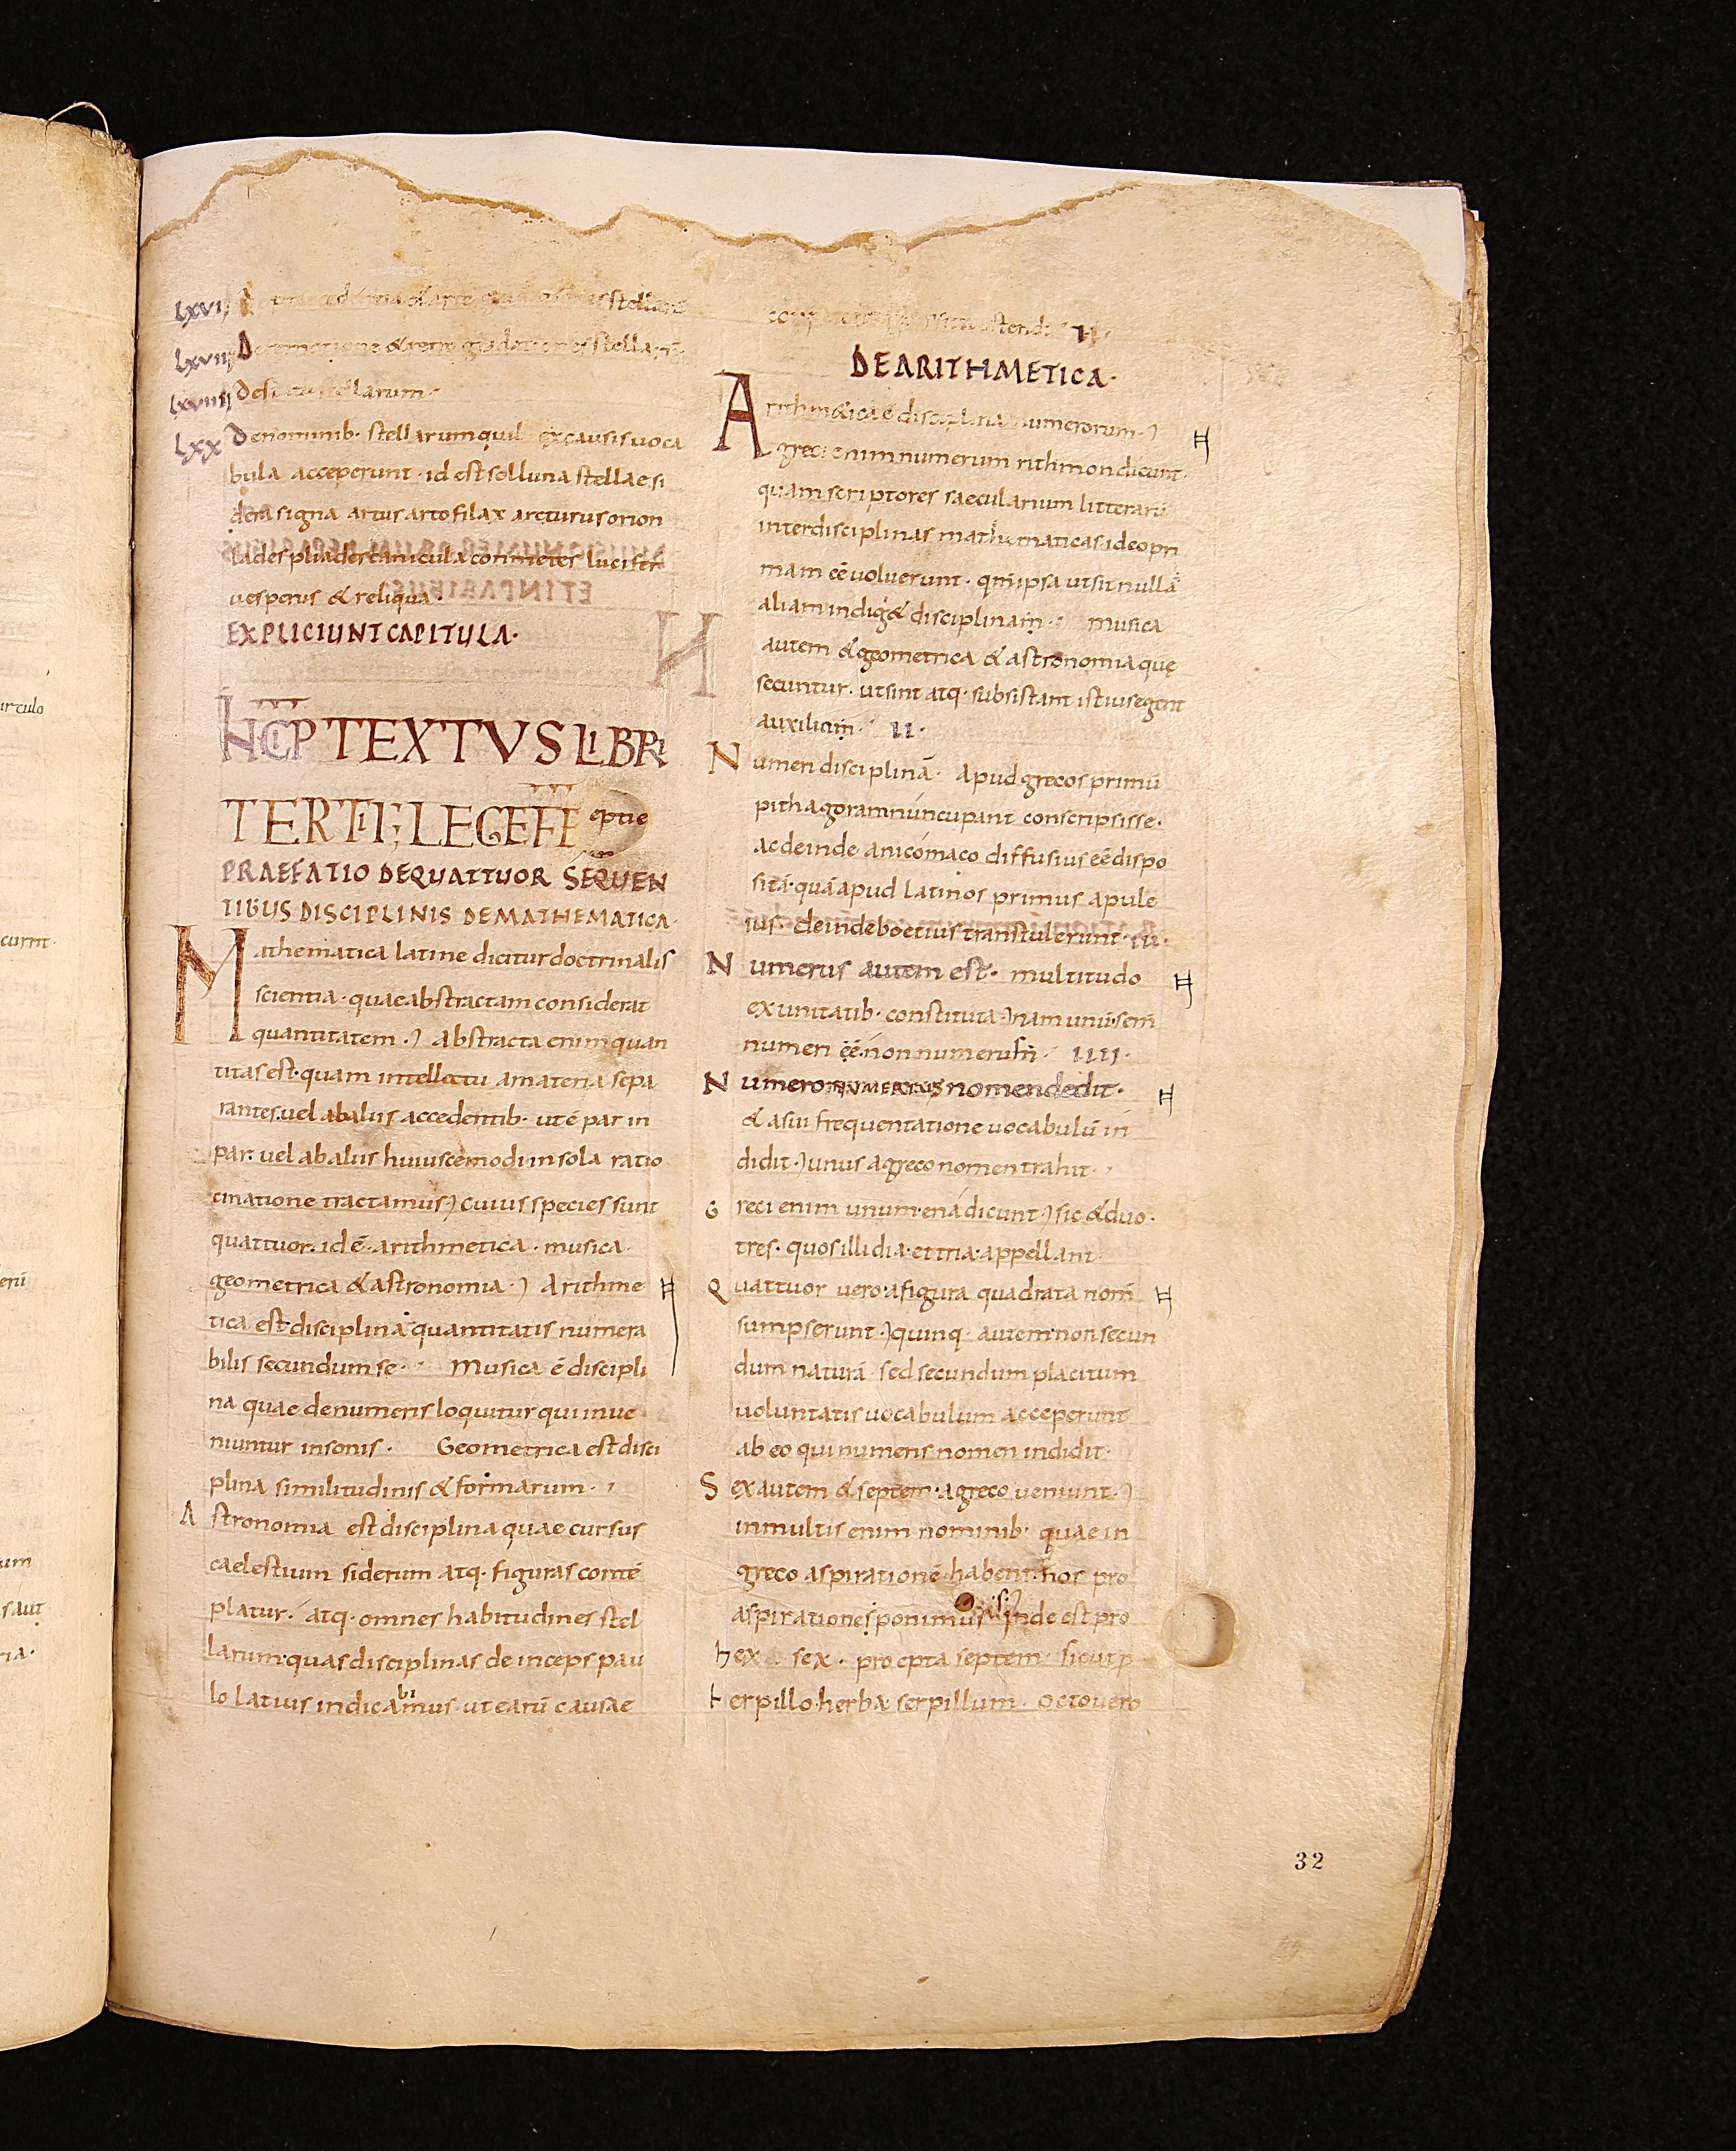 LXVII
stellarum
LXVIII De remotione & retrogradatione stellarū
LXVIIII De situ stellarum·
LXX Denominib· stellarum quil ex causis uoca
bula acceperunt· id est sol luna stellae si
dera signa artus artofilax arcturus orion
iades pliades canicula cometes lucifer
uesperus & reliqua·
EXPLICIUNT CAPITULA·
TEXTVS LIBRI
TERTII; LEGE FE eptie
PRAEFATIO DE QUATTUOR SEQUEN
TIBUS DISCIPLINIS DE MATHEMATICA·
Mathematica latine dicitur doctrinalis
scientia· quae abstractam considerat
quantitatem· Abstracta enim quan
titas est· quam intellectu a materia sepa
rantes uel ab aliis accedentib· ut ē par in
par· uel ab aliis huiuscemodi in sola ratio
cinatione tractamus cuius species sunt
quattuor· id ē· arithmetica· musica·
geometrica & astronomia· Arithme
tica est disciplina quantitatis numera
bilis secundum se· Musica ē discipli
na quae de numeris loquitur qui inue
niuntur in sonis· Geometrica est disci
plina similitudinis & formarum·
Astronomia est disciplina quae cursus
caelestium siderum atq· figuras contē
platur· atq· omnes habitudines stel
larum· quas disciplinas deinceps pau
bi
lo latius indicamus ut earū causae
ostend II·
DE ARITHMETICA·
Arithm&ica ē disciplina numerorum·
greci enim numerum rithmon dicunt·
quam scriptores saecularium litterarū
inter disciplinas mathematicas ideo pri
mam eē uoluerunt· qm̄ ipsa ut sit nullā
aliam indig& disciplinam· Musica
autem & geometrica & astronomia quę
secuntur· ut sint atq· subsistant istius egent
auxilium· II·
Numeri disciplinā· Apud grecos primū
pithagoram nuncupant conscripsisse·
ac deinde a nicomaco diffusius eē dispo
sitā· quā apud latinos primus apule
ius· deinde boetius transtulerunt· III·
Numerus autem est· multitudo
ex unitatib· constituta nam unū sem̄
numeri eē non numerum· IIII·
Numero nummus nomen dedit·
& a sui frequentatione uocabulū in
didit· unus a greco nomen trahit·
Greci enim unum ená dicunt sic & duo·
tres· quos illi dia· et tria· appellant·
Quattuor vero· a figura quadrata nom̄
sumpserunt· quinq· autem· non secun
dum naturā sed secundum placitum
uoluntatis uocabulum acceperunt
ab eo qui numeris nomen indidit·
Sex autem & septem· a greco ueniunt·
in multis enim nominib· quae in
greco aspirationē habent· nos pro
aspirationes ponimus ·s· inde est pro
hex sex· pro epta septem· sicut p
herpillo· herba serpillum· Octo uero
32